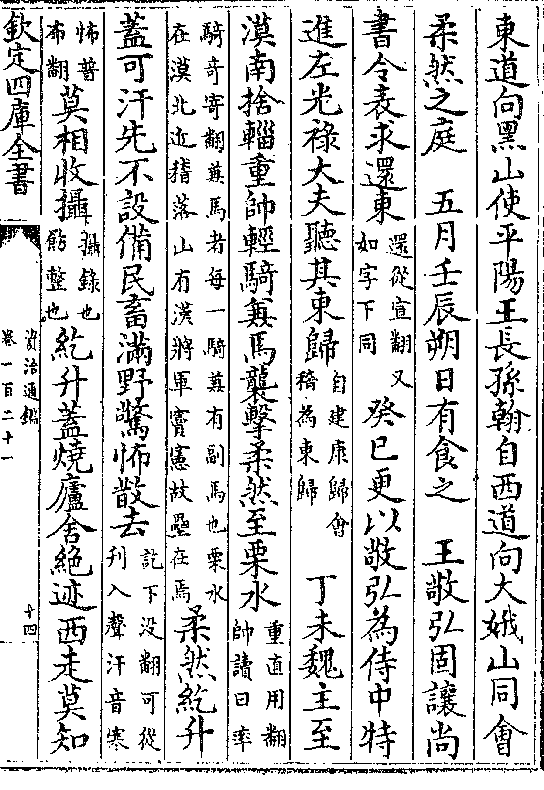 東道向黑山使平陽王長孫翰自西道向大娥山同會
柔然之庭　五月壬辰朔日有食之　王敬弘固讓尚
書令表求還東還從宣翻又如字下同癸巳更以敬弘為侍中特
進左光祿大夫聽其東歸自建康歸會稽為東歸丁未魏主至
漠南捨輜重帥輕騎兼馬襲擊柔然至栗水重直用翻帥讀曰率
騎奇寄翻兼馬者每一騎兼有副馬也栗水在漠北近稽落山有漢將軍竇憲故壘在焉柔然紇升
蓋可汗先不設備民畜滿野驚怖散去紇下没翻可從刊入聲汗音寒
怖普布翻莫相收攝攝錄也飭整也紇升蓋燒廬舍絶迹西走莫知
欽定四庫全書
資治通鑑
卷一百二十一
十四